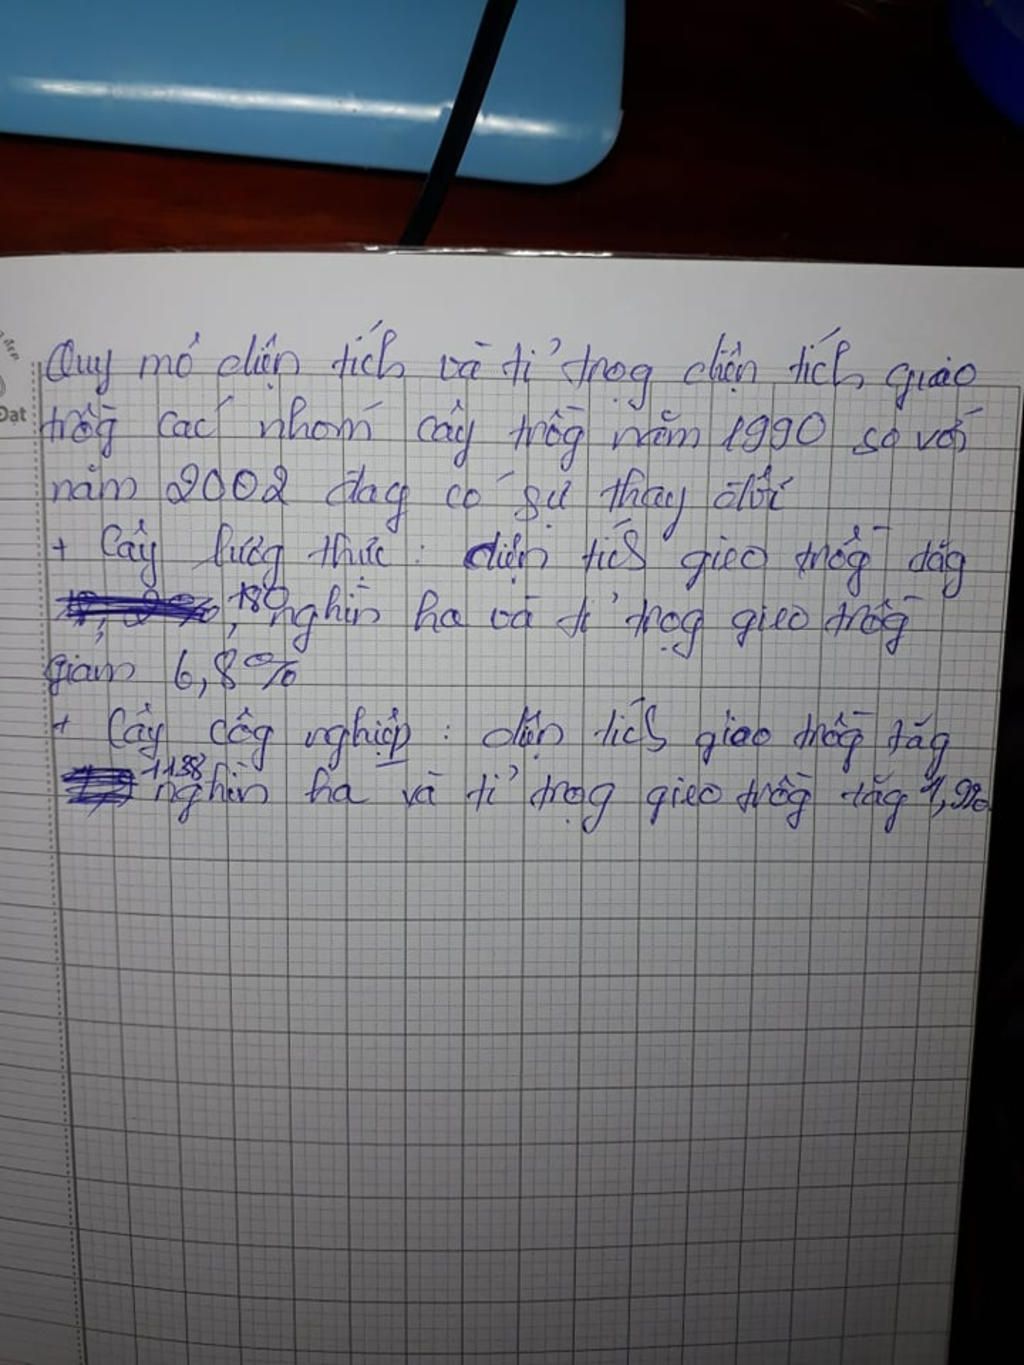 Quy mô diện tích và tỉ trọg diện tích giao
Đạt
trồg các nhóm cây trồg năm 1990 so với
năm 2002 đag có sự thay đổi
+ Cây lươg thực : diện tích gieo trồg tăg
180 nghìn ha và tỉ trọg gieo trồg
giảm 6,8%
+ Cây côg nghiệp : diện tích gieo trồg tăg
1138 nghìn ha và tỉ trọg gieo trồg tăg